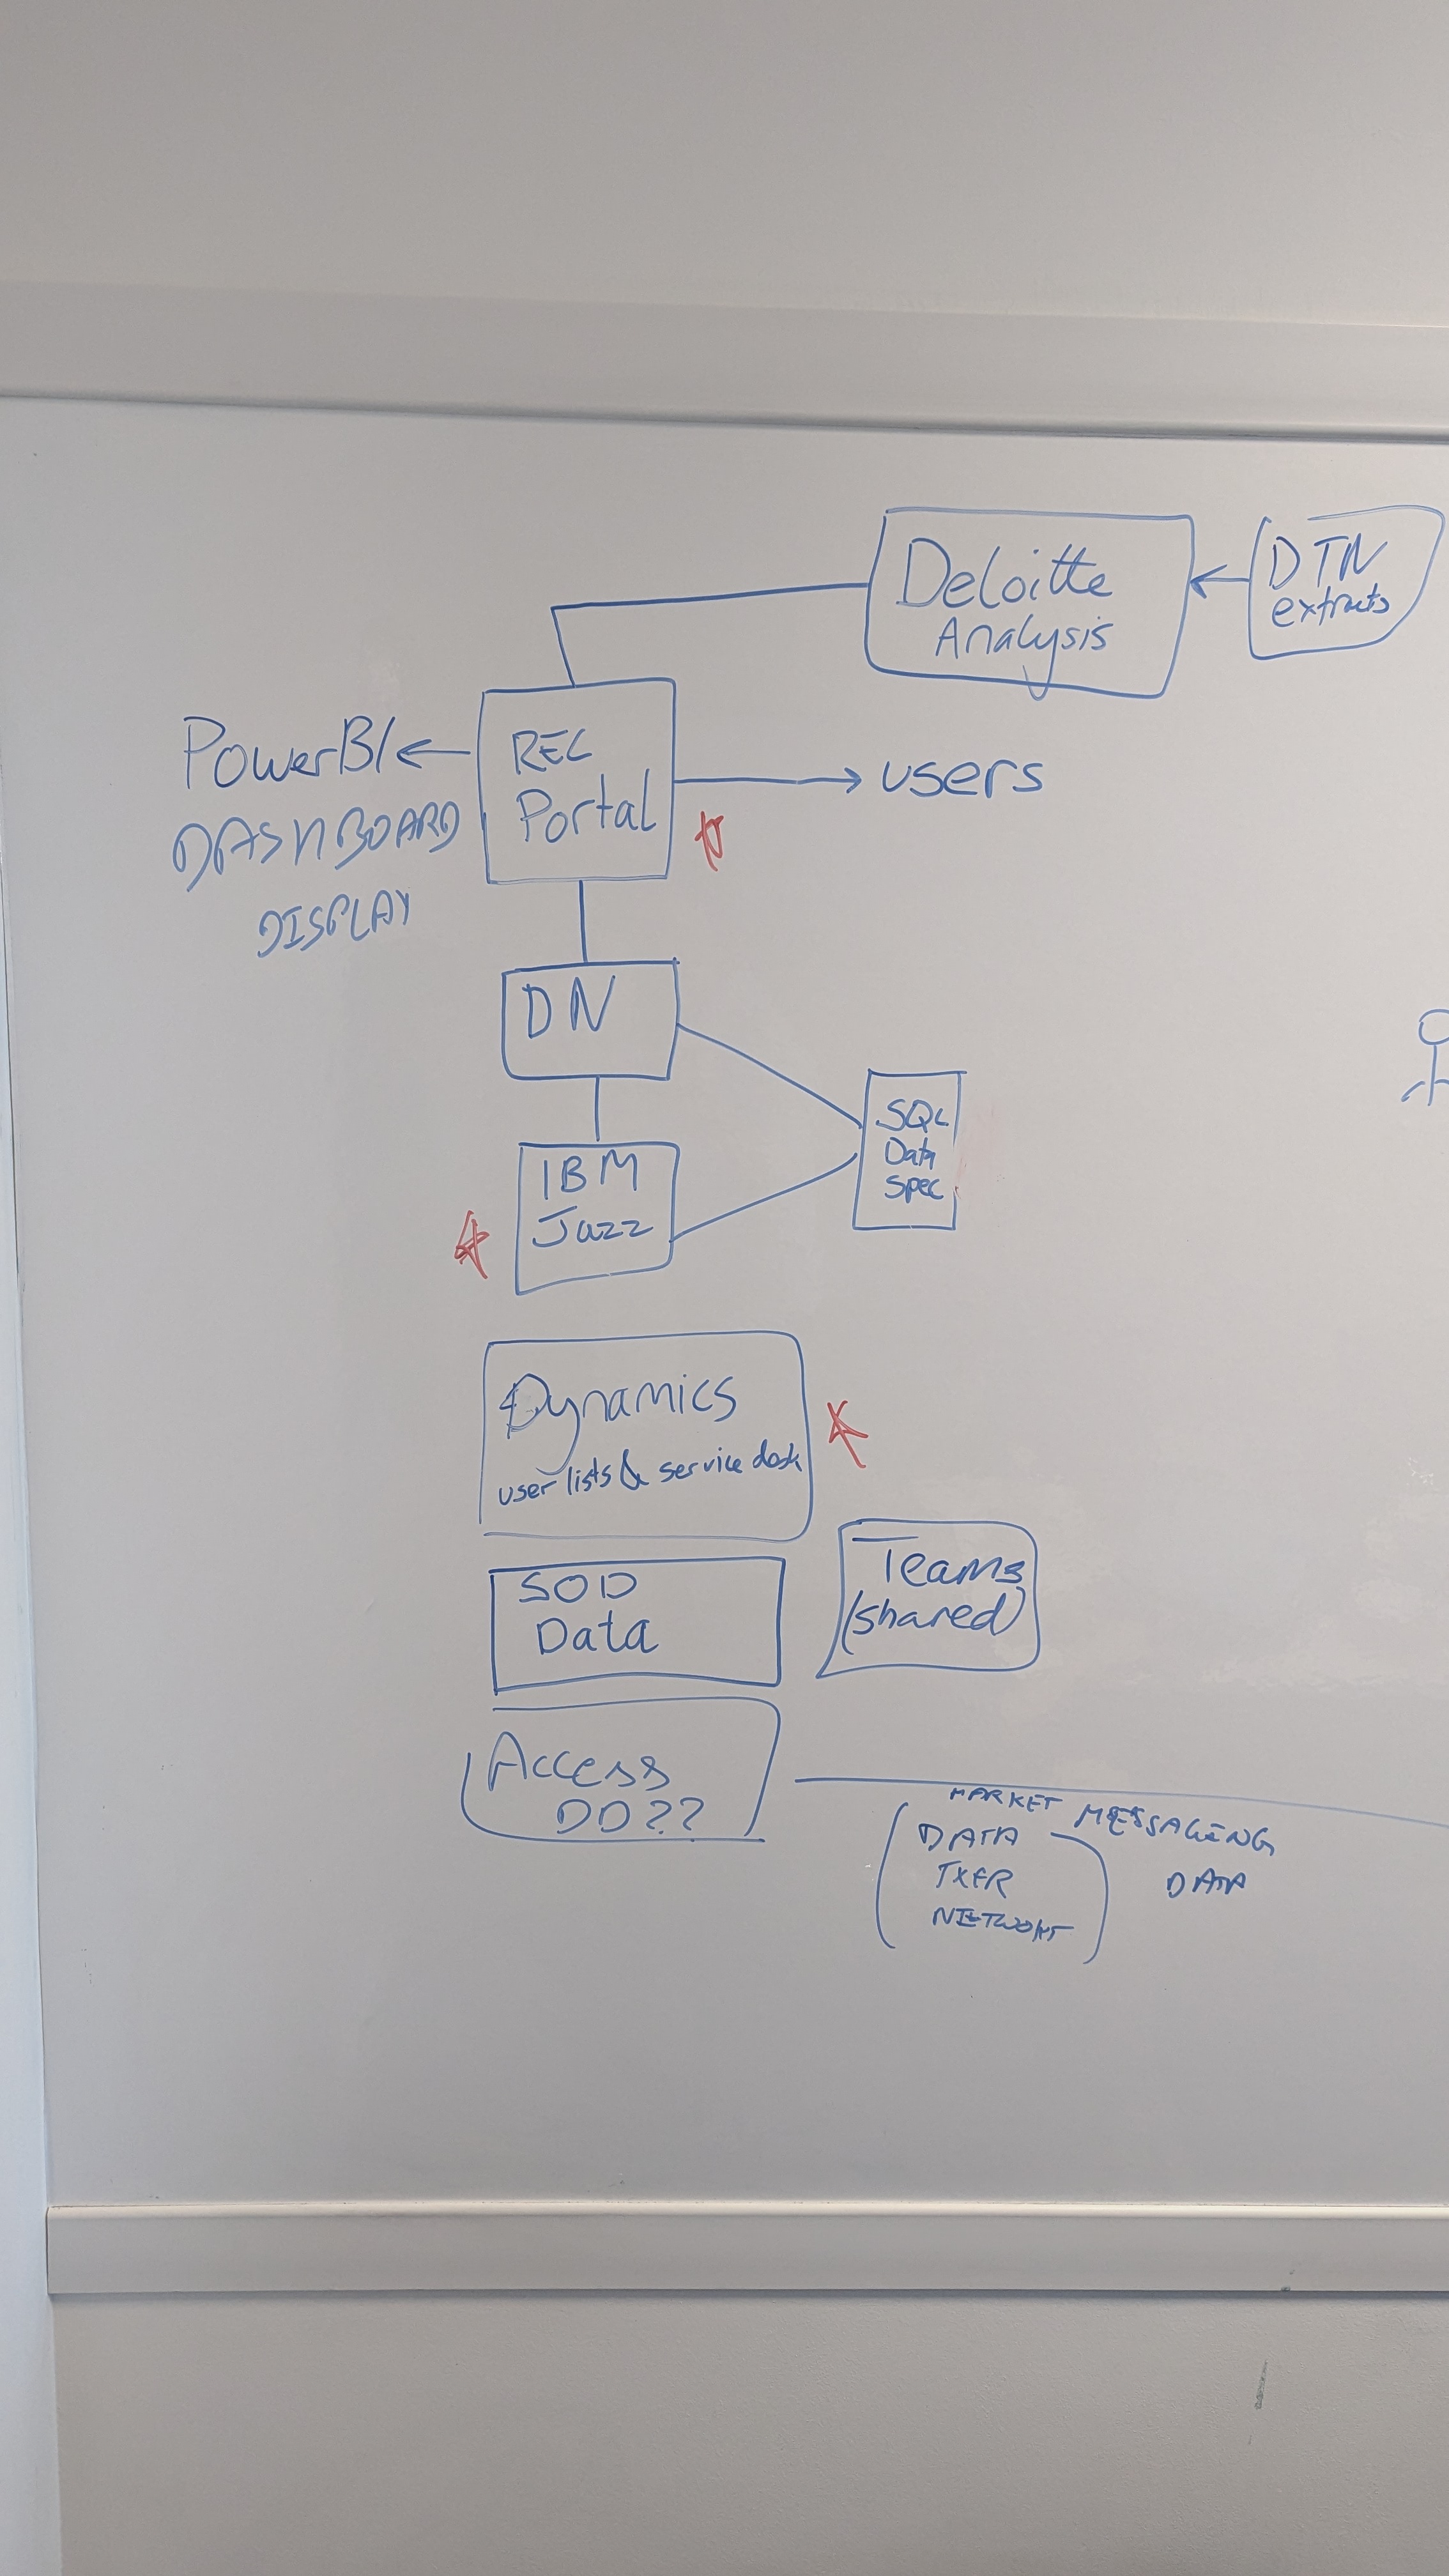 Deloitte
Analysis
DTN
extracts
PowerBI
DASHBOARD
DISPLAY
REC
Portal
users
DN
SQL
Data
Spec
IBM
Jazz
Dynamics
user lists & service desk
SOD
Data
Teams
(shared)
Access
DD??
MARKET MESSAGING
DATA
(DATA
TXFR
NETWORK)